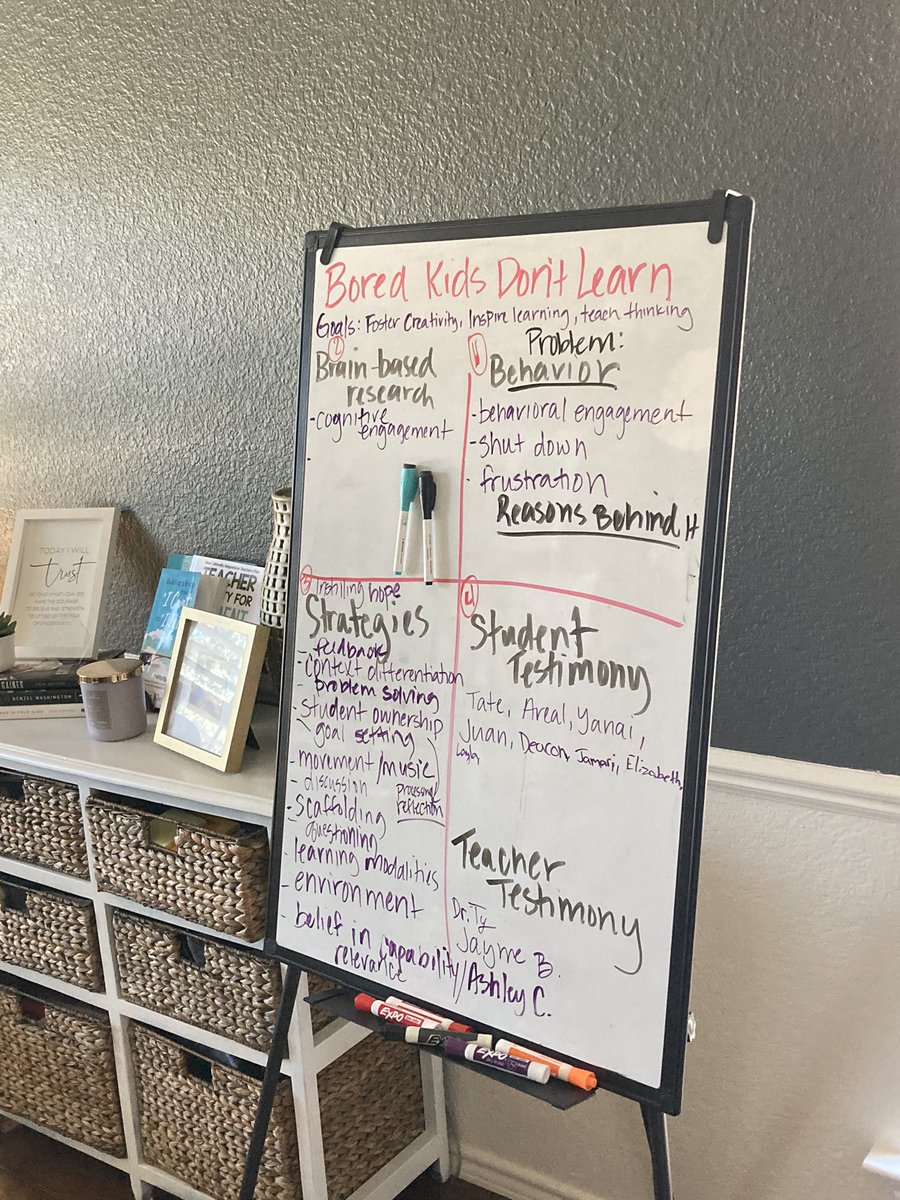 Bored Kids Don't Learn
Goals: Foster Creativity, Inspire learning, teach thinking
2
Brain-based
research
- cognitive
engagement
-
1
Problem:
Behavior
- behavioral engagement
- shut down
- frustration
Reasons Behind it
3
Instilling hope
Strategies
- feedback
- context differentiation
problem solving
- student ownership
goal setting
- movement/music
- discussion
processing/
reflection
- Scaffolding
questioning
- learning modalities
- environment
- belief in capability/
relevance
4
Student
Testimony
Tate, Areal, Yanai,
Juan, Deacon, Jamari, Elizabeth,
Layla
Teacher
Testimony
Dr. Ty
Jayme B.
Ashley C.
EXPO
EXPO
TODAY I WILL
trust
TEACHER
I Can't
DENZEL WASHINGTON